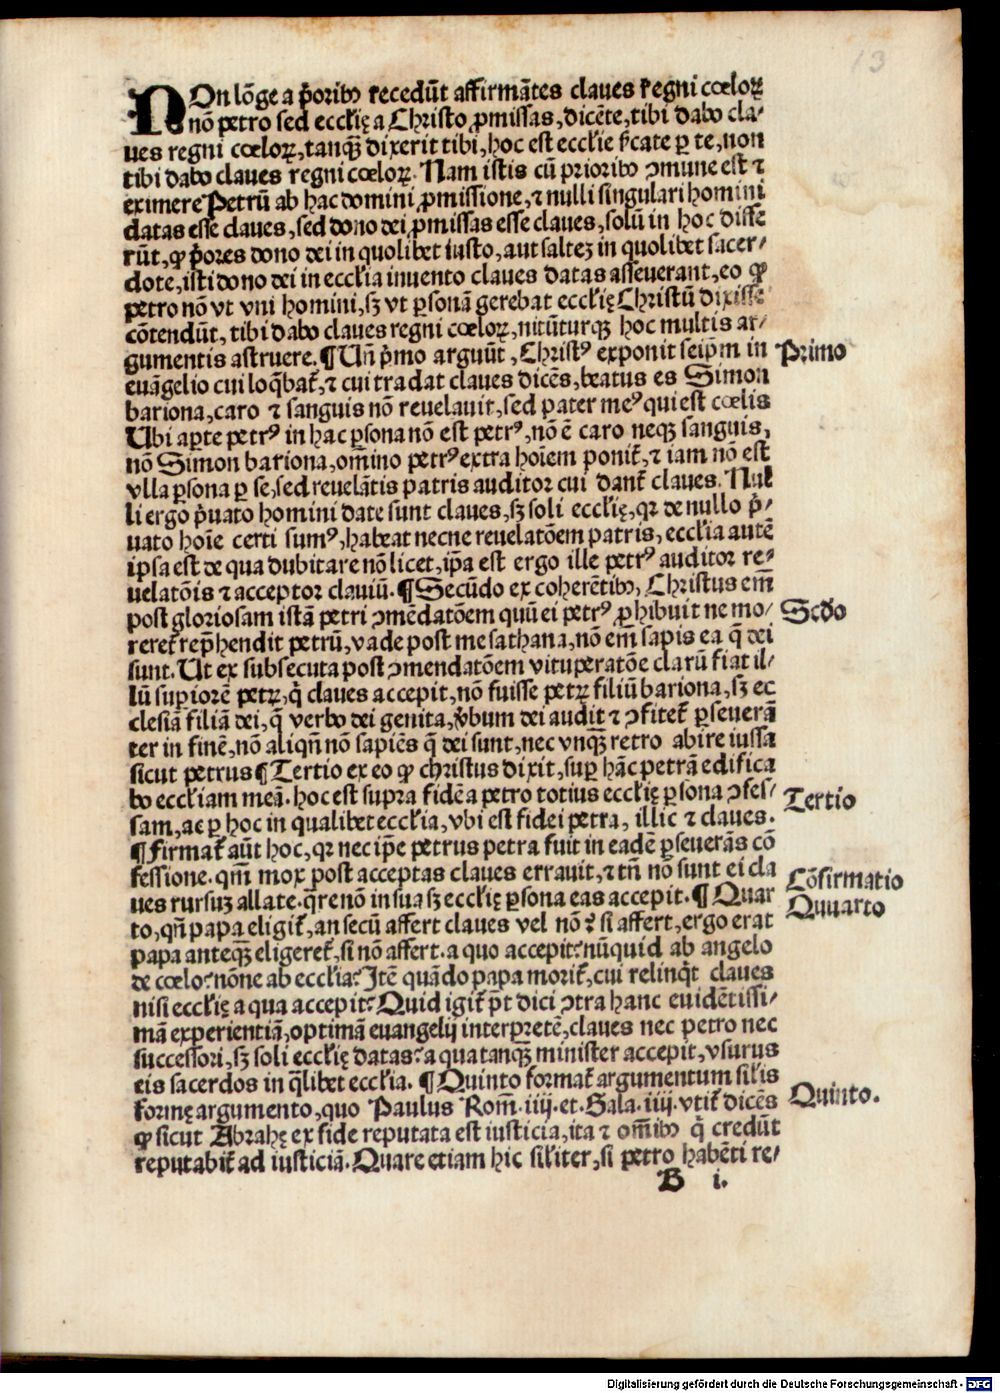 13
NOn lõge a p̃oribꝰ recedũt affirmãtes claves regni cœloꝝ
nõ petro sed eccłię a Christo ꝓmissas, dicẽte, tibi dabo cla⸗
ves regni cœloꝝ, tanqꝫ dixerit tibi, hoc est eccłie p̃cate ꝑ te, non
tibi dabo claves regni cœloꝝ. Nam istis cũ prioribꝰ ꝯmune est ⁊
eximere Petrũ ab hac domini ꝓmissione, ⁊ nulli singulari homini
datas esse claves, sed dono dei ꝓmissas esse claves, solũ in hoc diffe
rũt, ꝙ p̃ores dono dei in quolibet iusto, aut saltez in quolibet sacer⸗
dote, isti dono dei in eccłia invento claves datas asseverant, eo ꝙ
petro nõ vt vni homini, sꝫ vt ꝑsonã gerebat eccłię Christũ dixisse
cõtendũt, tibi dabo claves regni cœloꝝ, nitũturqꝫ hoc multis ar⸗
gumentis astruere. ¶ Uñ p̃mo arguũt, Christꝰ exponit seip̃m in
euãgelio cui loq̃bat᷑, ⁊ cui tradat claves dicẽs, beatus es Simon
bariona, caro ⁊ sanguis nõ reuelauit, sed pater meꝰ qui est cœlis
Ubi aꝑte petrꝰ in hac ꝑsona nõ est petrꝰ, nõ ẽ caro neqꝫ sanguis,
nõ Simon bariona, om̃ino petrꝰ extra hoĩem ponit᷑, ⁊ iam nõ est
vlla ꝑsona ꝑ se, sed reuelãtis patris auditor cui dant᷑ claves. Nul
li ergo p̃uato homini date sunt claves, sꝫ soli eccłię, qꝛ de nullo p̃⸗
uato hoĩe certi sumꝰ, habeat necne reuelatõem patris, eccłia autẽ
ipsa est de qua dubitare nõ licet, ip̃a est ergo ille petrꝰ auditor re⸗
uelatõis ⁊ acceptor claviũ. ¶ Secũdo ex coherẽtibꝰ, Christus em̃
post gloriosam istã petri ꝯmẽdatõem quũ ei petrꝰ ꝓhibuit ne mo⸗
reret᷑ rep̃hendit petrũ, vade post me sathana, nõ em̃ sapis ea q̃ dei
sunt. Ut ex subsecuta post ꝯmendatõem vituperatõe clarũ fiat il⸗
lũ suꝑiorẽ petꝝ, q̃ claves accepit, nõ fuisse petꝝ filiũ bariona, sꝫ ec
clesiã filiã dei, q̃ verbo dei genita, ṽbum dei audit ⁊ ꝯfitet᷑ ꝑseuerã
ter in finẽ, nõ aliqñ nõ sapiẽs q̃ dei sunt, nec vnqꝫ retro abire iussa
sicut petrus ¶ Tertio ex eo ꝙ christus dixit, suꝑ hãc petrã edifica
bo eccłiam meã. hoc est supra fidẽ a petro totius eccłię ꝑsona ꝯfes⸗
sam, ac ꝑ hoc in qualibet eccłia, vbi est fidei petra, illic ⁊ claves.
¶ firmat᷑ aũt hoc, qꝛ nec ip̃e petrus petra fuit in eadẽ ꝑseuerãs cõ
fessione. qm̃ mox post acceptas claves errauit, ⁊ tñ nõ sunt ei cla
ves rursuꝫ allate. q̃re nõ in sua sꝫ eccłię ꝑsona eas accepit. ¶ Quar
to, qñ papa eligit᷑, an secũ affert claves vel nõ? si affert, ergo erat
papa anteqꝫ eligeret᷑, si nõ affert. a quo accepit? nũquid ab angelo
de cœlo? nõne ab eccłia? Itẽ quãdo papa morit᷑, cui relinq̃t claves
nisi eccłię a qua accepit? Quid igit᷑ p̃t dici ꝯtra hanc euidẽtissi⸗
mã experientiã, optimã euangelij interp̃retẽ, claves nec petro nec
successori, sꝫ soli eccłię datas? a qua tanqꝫ minister accepit, vsurus
eis sacerdos in q̃libet eccłia. ¶ Quinto format᷑ argumentum siłis
formę argumento, quo Paulus Rom̃. iiij. et. Gala. iiij. vtit᷑ dicẽs
ꝙ sicut Abrahę ex fide reputata est iusticia, ita ⁊ om̃ibꝰ q̃ credũt
reputabit᷑ ad iusticiã. Quare etiam hic siłiter, si petro habẽti re⸗
B i.
Primo
Scd̃o
Tertio
Cõfirmatio
Quuarto
Quinto.
Digitalisierung gefördert durch die Deutsche Forschungsgemeinschaft - DFG